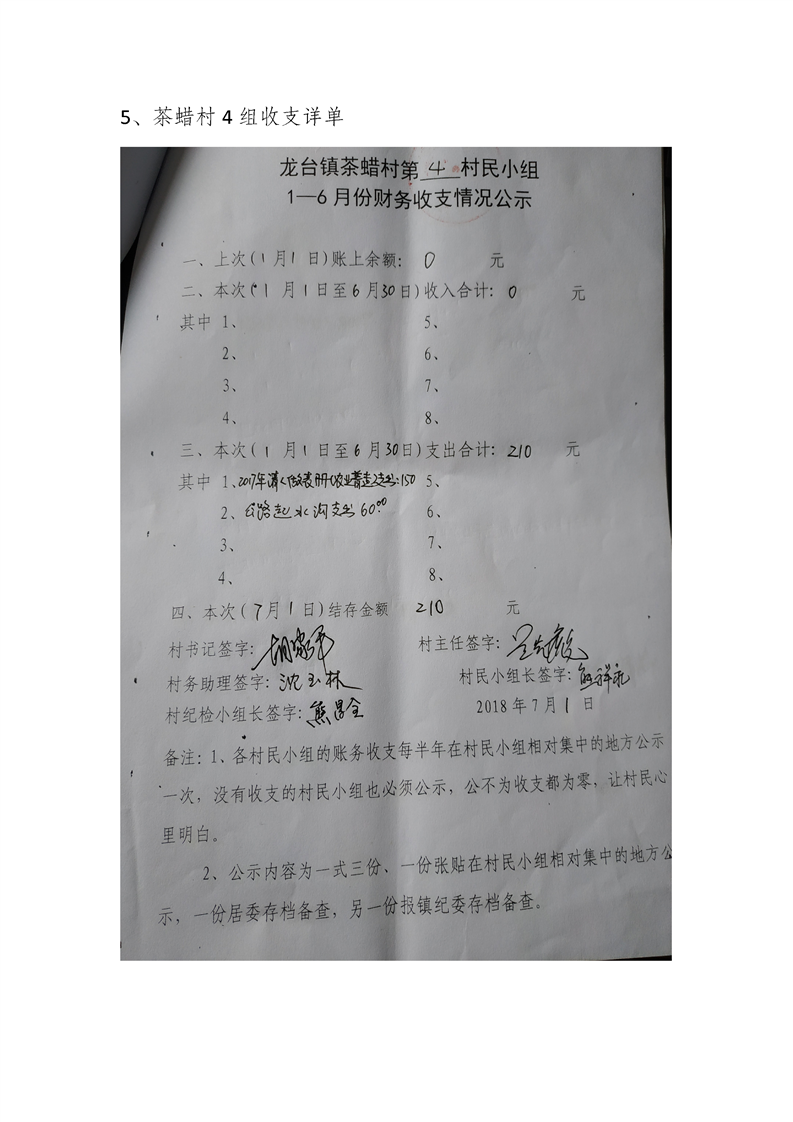 5、茶蜡村 4 组收支详单
龙台镇茶蜡村第 4 村民小组
1—6 月份财务收支情况公示
一、上次(1月1日)账上余额: 0 元
二、本次(1月1日至6月30日)收入合计: 0 元
其中 1、 5、
2、 6、
3、 7、
4、 8、
三、本次(1月1日至6月30日)支出合计: 210 元
其中 1、2017年 表册(农业普查)支出:150 5、
2、公路起水沟支出60.00 6、
3、 7、
4、 8、
四、本次(7月1日)结存金额 210 元
村书记签字: 村主任签字:
村务助理签字:沈玉林 村民小组长签字:
村纪检小组长签字:熊昌全 2018年7月1日
备注:1、各村民小组的账务收支每半年在村民小组相对集中的地方公示
一次，没有收支的村民小组也必须公示，公不为收支都为零，让村民心
里明白。
2、公示内容为一式三份、一份张贴在村民小组相对集中的地方公
示，一份居委存档备查，另一份报镇纪委存档备查。